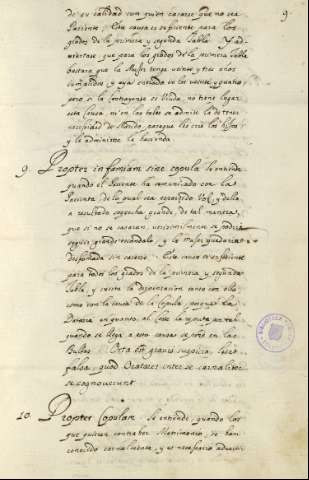 9
de su calidad con quien casarse que no sea
Pariente. Esta causa es suficiente para los
grados de la primera y segunda linea. Y ad-
viertase, que para los grados de la primera
bastara que la Muger tenga veinte y tres años
cumplidos, y aya entrado en los veinte y quatro
pero si la contrayente es Viuda, no tiene lugar
esta causa, ni en las tales se admite la de tener
necesidad de Marido, para que les crie los hijos
y le administre la hacienda.
9. Propter infamiam sine copula se entiende
quando el Pariente ha comunicado con la
Parienta, de lo qual sea y della
a resultado sospecha grande, de tal manera,
que si no se casaran, verisimilmente se podria
seguir grande escandalo, y la muger quedaria
difamada sin casarse. Esta causa es suficiente
para todos los grados de la primera y segunda
, y cuesta la dispensacion tanto con ella
como con la causa de la Copula, porque la
Dataria en quanto al la reputa por tal
quando se llega a esta causa se pone en las
Bullas. Orta est gravis suspicio, licet
falsa, quod Oratores inter se carnaliter
se cognoverint.
10. Propter Copulam. Se entiende, quando los
que quieren contraher Matrimonio, se han
conocido carnalmente, y es necesario advertir